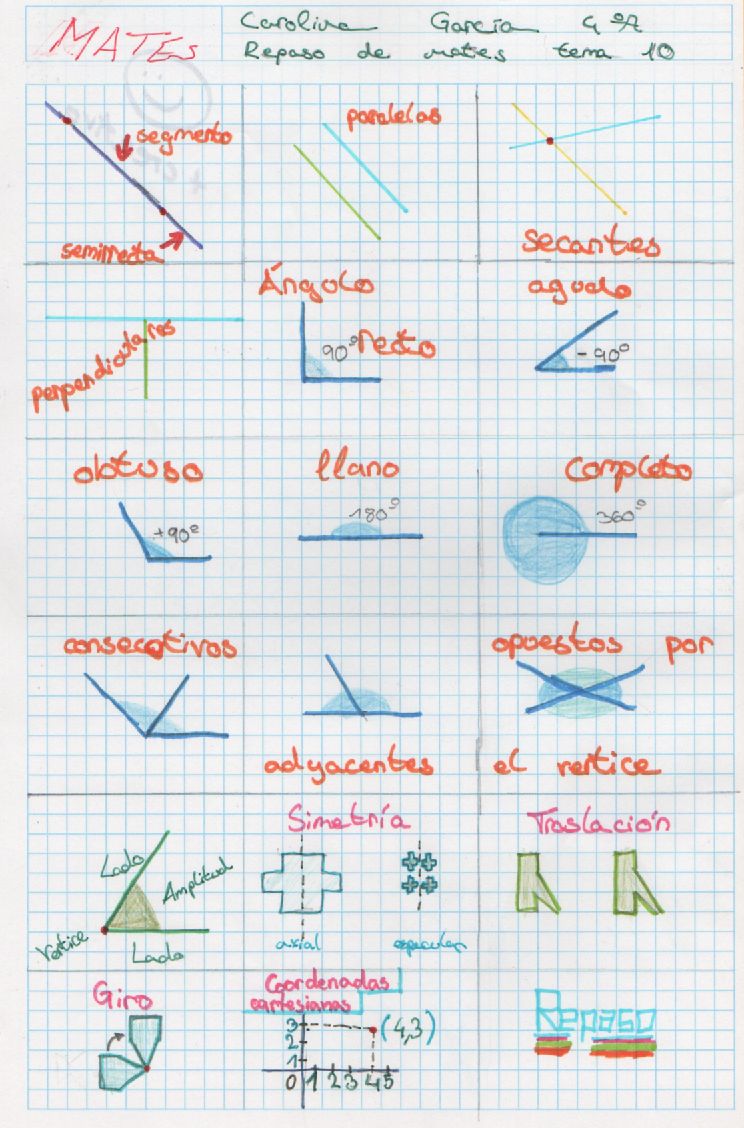 MATES
Carolina García 4ºA
Repaso de mates tema 10
segmento
semirrecta
paralelas
secantes
perpendiculares
Ángulo
90º recto
agudo
-90º
obtuso
+90º
llano
180º
completo
360º
consecutivos
adyacentes
opuestos por
el vertice
Lado
Amplitud
Vértice
Lado
Simetría
axial
especular
Traslación
Giro
Coordenadas
cartesianas
(4,3)
3
2
1
0 1 2 3 4 5
Repaso